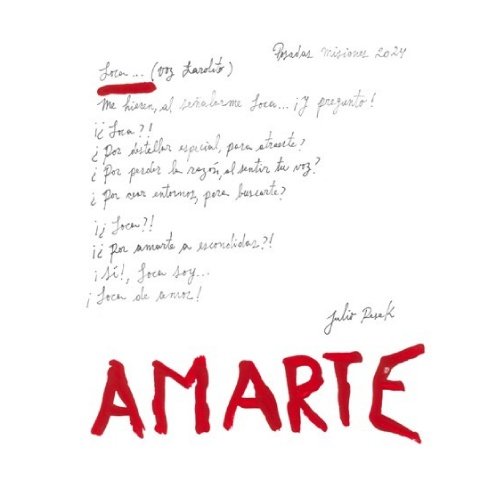 Posadas Misiones 2024
Loca... (voz Laolito)
Me hieren, al señalarme Loca... ¡Y pregunto!
¡¿Loca?!
¿Por destellar especial, para atraerte?
¿Por perder la razón, al sentir tu voz?
¿Por crear entornos, para buscarte?
¡¿Loca?!
¡¿Por amarte a escondidas?!
¡Sí!, Loca soy...
¡Loca de amor!
Julio Rasak
AMARTE